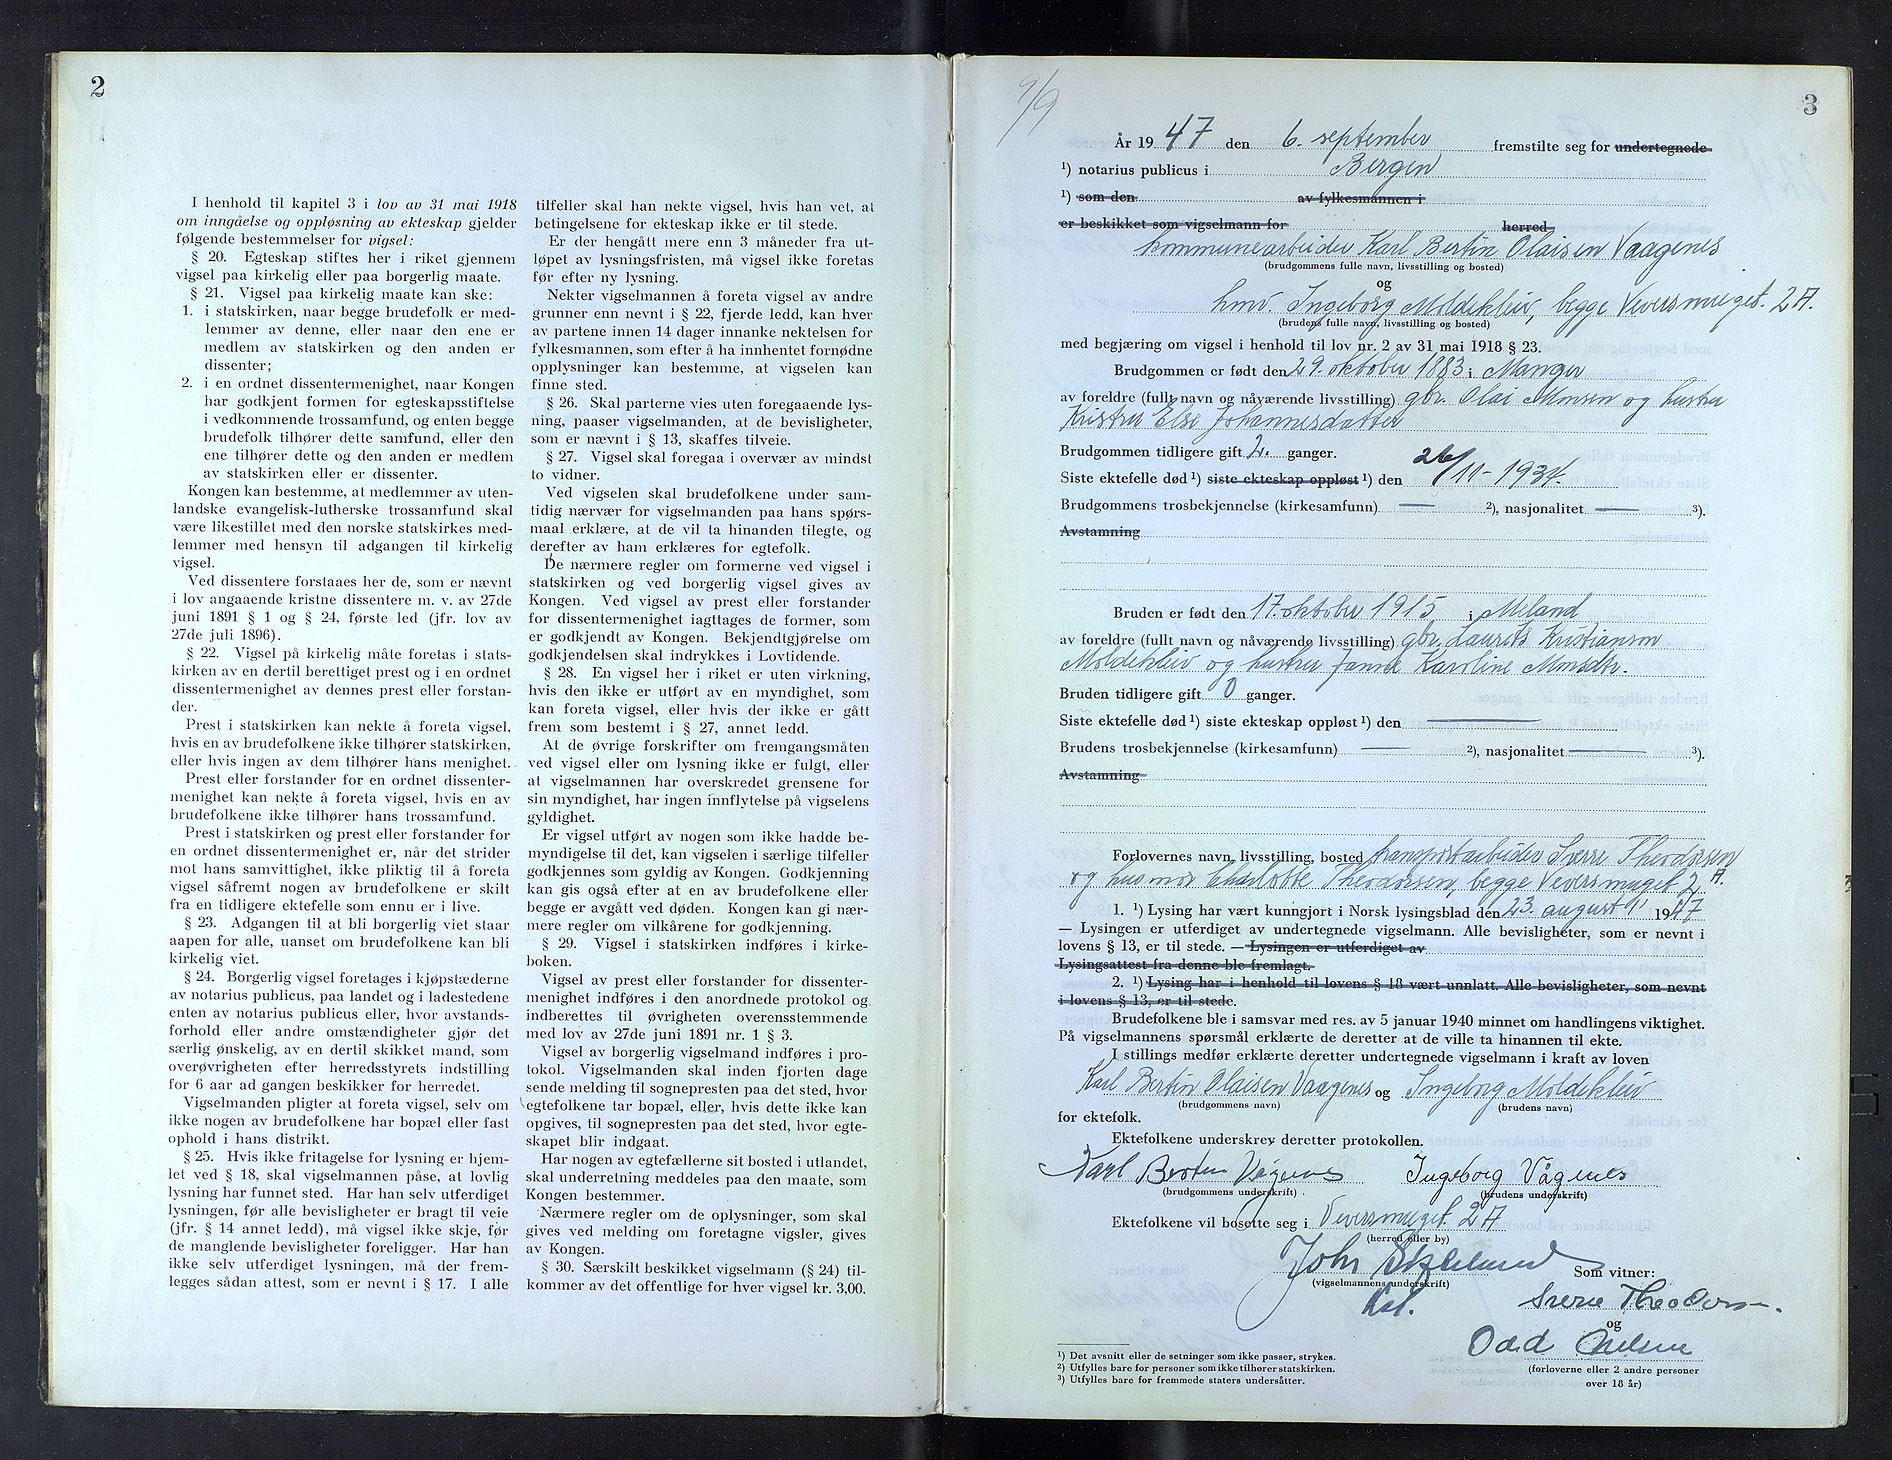 2
I henhold til kapitel 3 i lov av 31 mai 1918
om inngåelse og oppløsning av ekteskap gjelder
følgende bestemmelser for vigsel:
§ 20. Egteskap stiftes her i riket gjennem
vigsel paa kirkelig eller paa borgerlig maate.
§ 21. Vigsel paa kirkelig maate kan ske:
1. i statskirken, naar begge brudefolk er med-
lemmer av denne, eller naar den ene er
medlem av statskirken og den anden er
dissenter;
2. i en ordnet dissentermenighet, naar Kongen
har godkjent formen for egteskapsstiftelse
i vedkommende trossamfund, og enten begge
brudefolk tilhører dette samfund, eller den
ene tilhører dette og den anden er medlem
av statskirken eller er dissenter.
Kongen kan bestemme, at medlemmer av uten-
landske evangelisk-lutherske trossamfund skal
være likestillet med den norske statskirkes med-
lemmer med hensyn til adgangen til kirkelig
vigsel.
Ved dissentere forstaaes her de, som er nævnt
i lov angaaende kristne dissentere m. v. av 27de
juni 1891 § 1 og § 24, første led (jfr. lov av
27de juli 1896).
§ 22. Vigsel på kirkelig måte foretas i stats-
kirken av en dertil berettiget prest og i en ordnet
dissentermenighet av dennes prest eller forstan-
der.
Prest i statskirken kan nekte å foreta vigsel,
hvis en av brudefolkene ikke tilhører statskirken,
eller hvis ingen av dem tilhører hans menighet.
Prest eller forstander for en ordnet dissenter-
menighet kan nekte å foreta vigsel, hvis en av
brudefolkene ikke tilhører hans trossamfund.
Prest i statskirken og prest eller forstander for
en ordnet dissentermenighet er, når det strider
mot hans samvittighet, ikke pliktig til å foreta
vigsel såfremt nogen av brudefolkene er skilt
fra en tidligere ektefelle som ennu er i live.
§ 23. Adgangen til at bli borgerlig viet staar
aapen for alle, uanset om brudefolkene kan bli
kirkelig viet.
§ 24. Borgerlig vigsel foretages i kjøpstæderne
av notarius publicus, paa landet og i ladestedene
enten av notarius publicus eller, hvor avstands-
forhold eller andre omstændigheter gjør det
særlig ønskelig, av en dertil skikket mand, som
overøvrigheten efter herredsstyrets indstilling
for 6 aar ad gangen beskikker for herredet.
Vigselmanden pligter at foreta vigsel, selv om
ikke nogen av brudefolkene har bopæl eller fast
ophold i hans distrikt.
§ 25. Hvis ikke fritagelse for lysning er hjem-
let ved § 18, skal vigselmannen påse, at lovlig
lysning har funnet sted. Har han selv utferdiget
lysningen, før alle bevisligheter er bragt til veie
(jfr. § 14 annet ledd), må vigsel ikke skje, før
de manglende bevisligheter foreligger. Har han
ikke selv utferdiget lysningen, må der frem-
legges sådan attest, som er nevnt i § 17. I alle
tilfeller skal han nekte vigsel, hvis han vet, at
betingelsene for ekteskap ikke er til stede.
Er der hengått mere enn 3 måneder fra ut-
løpet av lysningsfristen, må vigsel ikke foretas
før efter ny lysning.
Nekter vigselmannen å foreta vigsel av andre
grunner enn nevnt i § 22, fjerde ledd, kan hver
av partene innen 14 dager innanke nektelsen for
fylkesmannen, som efter å ha innhentet fornødne
opplysninger kan bestemme, at vigselen kan
finne sted.
§ 26. Skal parterne vies uten foregaaende lys-
ning, paaser vigselmanden, at de bevisligheter,
som er nævnt i § 13, skaffes tilveie.
§ 27. Vigsel skal foregaa i overvær av mindst
to vidner.
Ved vigselen skal brudefolkene under sam-
tidig nærvær for vigselmanden paa hans spørs-
maal erklære, at de vil ta hinanden tilegte, og
derefter av ham erklæres for egtefolk.
De nærmere regler om formerne ved vigsel i
statskirken og ved borgerlig vigsel gives av
Kongen. Ved vigsel av prest eller forstander
for dissentermenighet iagttages de former, som
er godkjendt av Kongen. Bekjendtgjørelse om
godkjendelsen skal indrykkes i Lovtidende.
§ 28. En vigsel her i riket er uten virkning,
hvis den ikke er utført av en myndighet, som
kan foreta vigsel, eller hvis der ikke er gått
frem som bestemt i § 27, annet ledd.
At de øvrige forskrifter om fremgangsmåten
ved vigsel eller om lysning ikke er fulgt, eller
at vigselmannen har overskredet grensene for
sin myndighet, har ingen innflytelse på vigselens
gyldighet.
Er vigsel utført av nogen som ikke hadde be-
myndigelse til det, kan vigselen i særlige tilfeller
godkjennes som gyldig av Kongen. Godkjenning
kan gis også efter at en av brudefolkene eller
begge er avgått ved døden. Kongen kan gi nær-
mere regler om vilkårene for godkjenning.
§ 29. Vigsel i statskirken indføres i kirke-
boken.
Vigsel av prest eller forstander for dissenter-
menighet indføres i den anordnede protokol og
indberettes til øvrigheten overensstemmende
med lov av 27de juni 1891 nr. 1 § 3.
Vigsel av borgerlig vigselmand indføres i pro-
tokol. Vigselmanden skal inden fjorten dage
sende melding til sognepresten paa det sted, hvor
egtefolkene tar bopæl, eller, hvis dette ikke kan
opgives, til sognepresten paa det sted, hvor egte-
skapet blir indgaat.
Har nogen av egtefællerne sit bosted i utlandet,
skal underretning meddeles paa den maate, som
Kongen bestemmer.
Nærmere regler om de oplysninger, som skal
gives ved melding om foretagne vigsler, gives
av Kongen.
§ 30. Særskilt beskikket vigselmann (§ 24) til-
kommer av det offentlige for hver vigsel kr. 3,00.
9/9
3
År 1947 den 6. september fremstilte seg for undertegnede
1) notarius publicus i Bergen
1) som den av fylkesmannen i
er beskikket som vigselmann for herred
kommunearbeider Karl Bertin Olaisen Vaagenes
(brudgommens fulle navn, livsstilling og bosted)
og
hmv. Ingeborg Moldekleiv, begge Veversmuget 2 A.
(brudens fulle navn, livsstilling og bosted)
med begjæring om vigsel i henhold til lov nr. 2 av 31 mai 1918 § 23.
Brudgommen er født den 29. oktober 1883 i Manger
av foreldre (fullt navn og nåværende livsstilling) gbr. Olai Monsen og hustru
Kristru Else Johannesdatter
Brudgommen tidligere gift 2. ganger.
Siste ektefelle død 1) siste ekteskap oppløst 1) den 26/11-1934.
Brudgommens trosbekjennelse (kirkesamfunn) — 2), nasjonalitet — 3).
Avstamning
Bruden er født den 17. oktober 1915 i Meland
av foreldre (fullt navn og nåværende livsstilling) gbr. Laurits Kristianson
Moldekleiv og hustru Janna Karoline Monsdtr.
Bruden tidligere gift 0 ganger.
Siste ektefelle død 1) siste ekteskap oppløst 1) den —
Brudens trosbekjennelse (kirkesamfunn) — 2), nasjonalitet — 3).
Avstamning
Forlovernes navn, livsstilling, bosted transportarbeider Sverre Theodorsen
og husmor Charlotte Theodorsen, begge Veversmuget 2 A.
1. 1) Lysing har vært kunngjort i Norsk lysingsblad den 23. august 1947
— Lysingen er utferdiget av undertegnede vigselmann. Alle bevisligheter, som er nevnt i
lovens § 13, er til stede. — Lysingen er utferdiget av
Lysingsattest fra denne ble fremlagt.
2. 1) Lysing har i henhold til lovens § 18 vært unnlatt. Alle bevisligheter, som nevnt
i lovens § 13, er til stede.
Brudefolkene ble i samsvar med res. av 5 januar 1940 minnet om handlingens viktighet.
På vigselmannens spørsmål erklærte de deretter at de ville ta hinannen til ekte.
I stillings medfør erklærte deretter undertegnede vigselmann i kraft av loven
Karl Bertin Olaisen Vaagenes og Ingeborg Moldekleiv
(brudgommens navn) (brudens navn)
for ektefolk.
Ektefolkene underskrev deretter protokollen.
Karl Bertin Vågenes Ingeborg Vågenes
(brudgommens underskrift) (brudens underskrift)
Ektefolkene vil bosette seg i Veversmuget 2 A
(herred eller by)
John
(vigselmannens underskrift)
Som vitner:
Sverre Theodorsen.
og
Odd
(forloverne eller 2 andre personer
over 18 år)
1) Det avsnitt eller de setninger som ikke passer, strykes.
2) Utfylles bare for personer som ikke tilhører statskirken.
3) Utfylles bare for fremmede staters undersåtter.